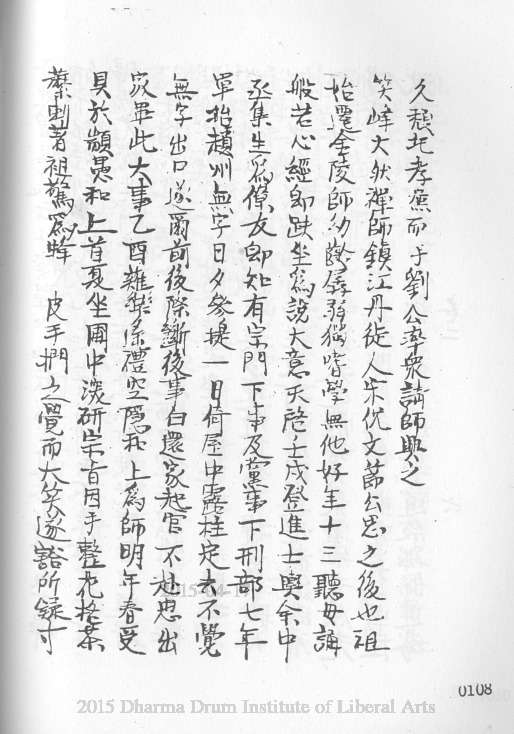 久頹圮孝廉而于劉公率眾請師興之
笑峰大然禪師鎮江丹徒人宋倪文節公思之後也祖
怡遷金陵師幼齡孱弱獨嗜學無他好年十三聽母誦
般若心經即趺坐為說大意天啓壬戌登進士與余中
丞集生為僚友即知有宗門下事及黨事下刑部七年
單抬趙州無字日夕參提一日倚屋中露柱定去不覺
無字出口遂爾前後際斷後事白還家起官不赴忠出
家畢此大事乙酉薙髮系禮空隱和上為師明年春受
具於顓愚和上首夏坐圃中深研宗旨因手整花格茶
蘪刺著祖驚為蜂 皮手捫之覺而大笑遂豁所錄寸
0108
2015-04-1
2015 Dharma Drum Institute of Liberal Arts